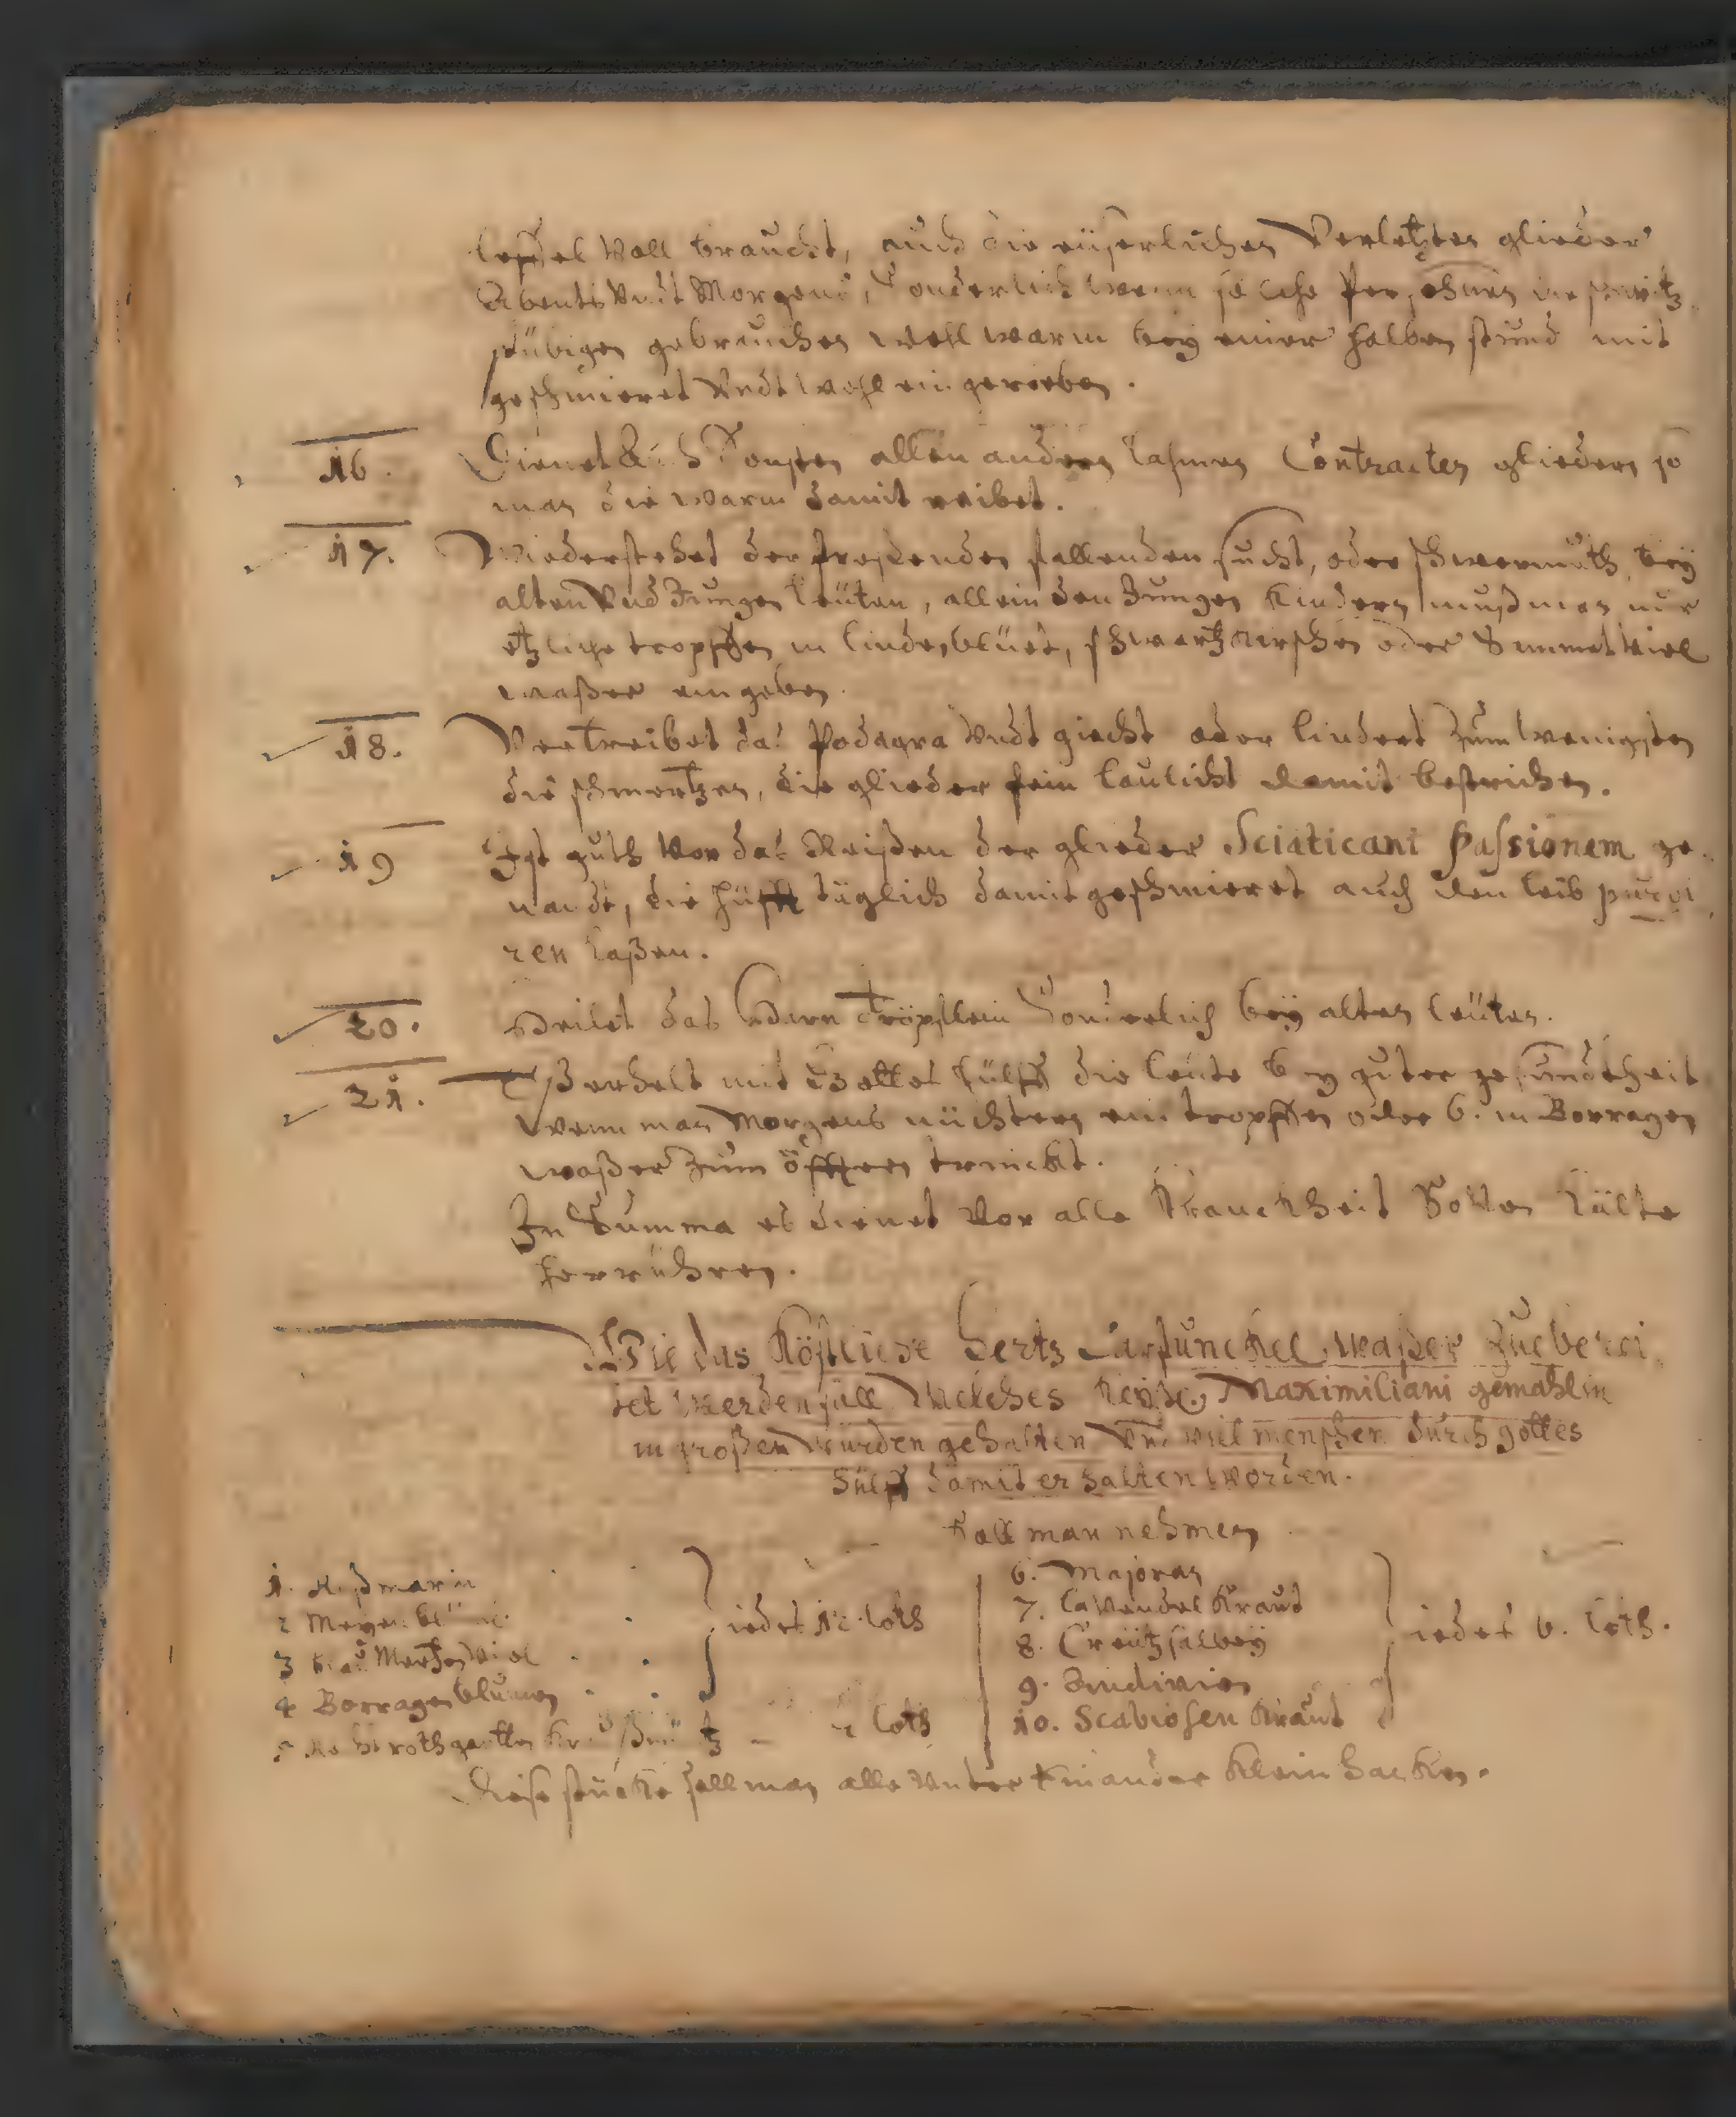 leffel voll braucht, auch die eüserlichen Verletzten glieder
Abents Vndt Morgens, Sonderlich wenn solche Persohnen die schwitz
stübigen gebrauchen woll warm bey einer halben stund mit
geschmieret Vndt wohl ein gerieben.
16. Dienet Auch Sonsten allen andern lahmen Contracten gliedern so
man die warm damit reibet.
17. Wiederstehet der fresenden fallenden sucht, oder schwermuth, bey
alten Vnd Jungen leüten, allein den Jungen Kindern muß man nur
etzliche tropffen in lindenblüet, schwartz Kirschen oder Sammet Viel
waßer ein geben.
18. Vertreibet das Podagra Vndt giecht oder lindert zum wenigsten
die schmertzen, die glieder fein laulicht damit bestrichen.
19 Ist guth Vor das Reißen der glieder Sciaticam Passionem ge-
nandt, die hüfft täglich damit geschmieret auch den leib purgi
ren laßen.
20. Heilet das Harn Tröpflein Sonderlich bey alten leüten.
21. Eß erhelt mit Gottes hülff die leute bey guter gesundtheit
wenn man Morgens nüchtern ein tropffen oder 6. in Borragen
waßer zum öfftern trinckt.
In Summa es dienet Vor alle Kranckheit So Von Kälte
herrühren.
Wie das Köstliche Hertz Carfunckel waßer Zue berei
tet werden soll Welches Keÿs. Maximiliani gemahlin
in großen würden gehalten Vnd viel menschen durch gottes
hülff damit erhalten worden.
Soll man nehmen
1. Roßmarin
2 Meyen blüm
3 blau Mertzen Viol
4 Borragen blumen
iedes 12 loth
5 Krauße müntz loth
6. Majoran
7. lavendel Kraut
8. Creützsalbeÿ
9. Endivien
10. Scabiosen Kraut
iedes 6. loth.
Diese stücke soll man alle Vnter Einander Klein hacken.